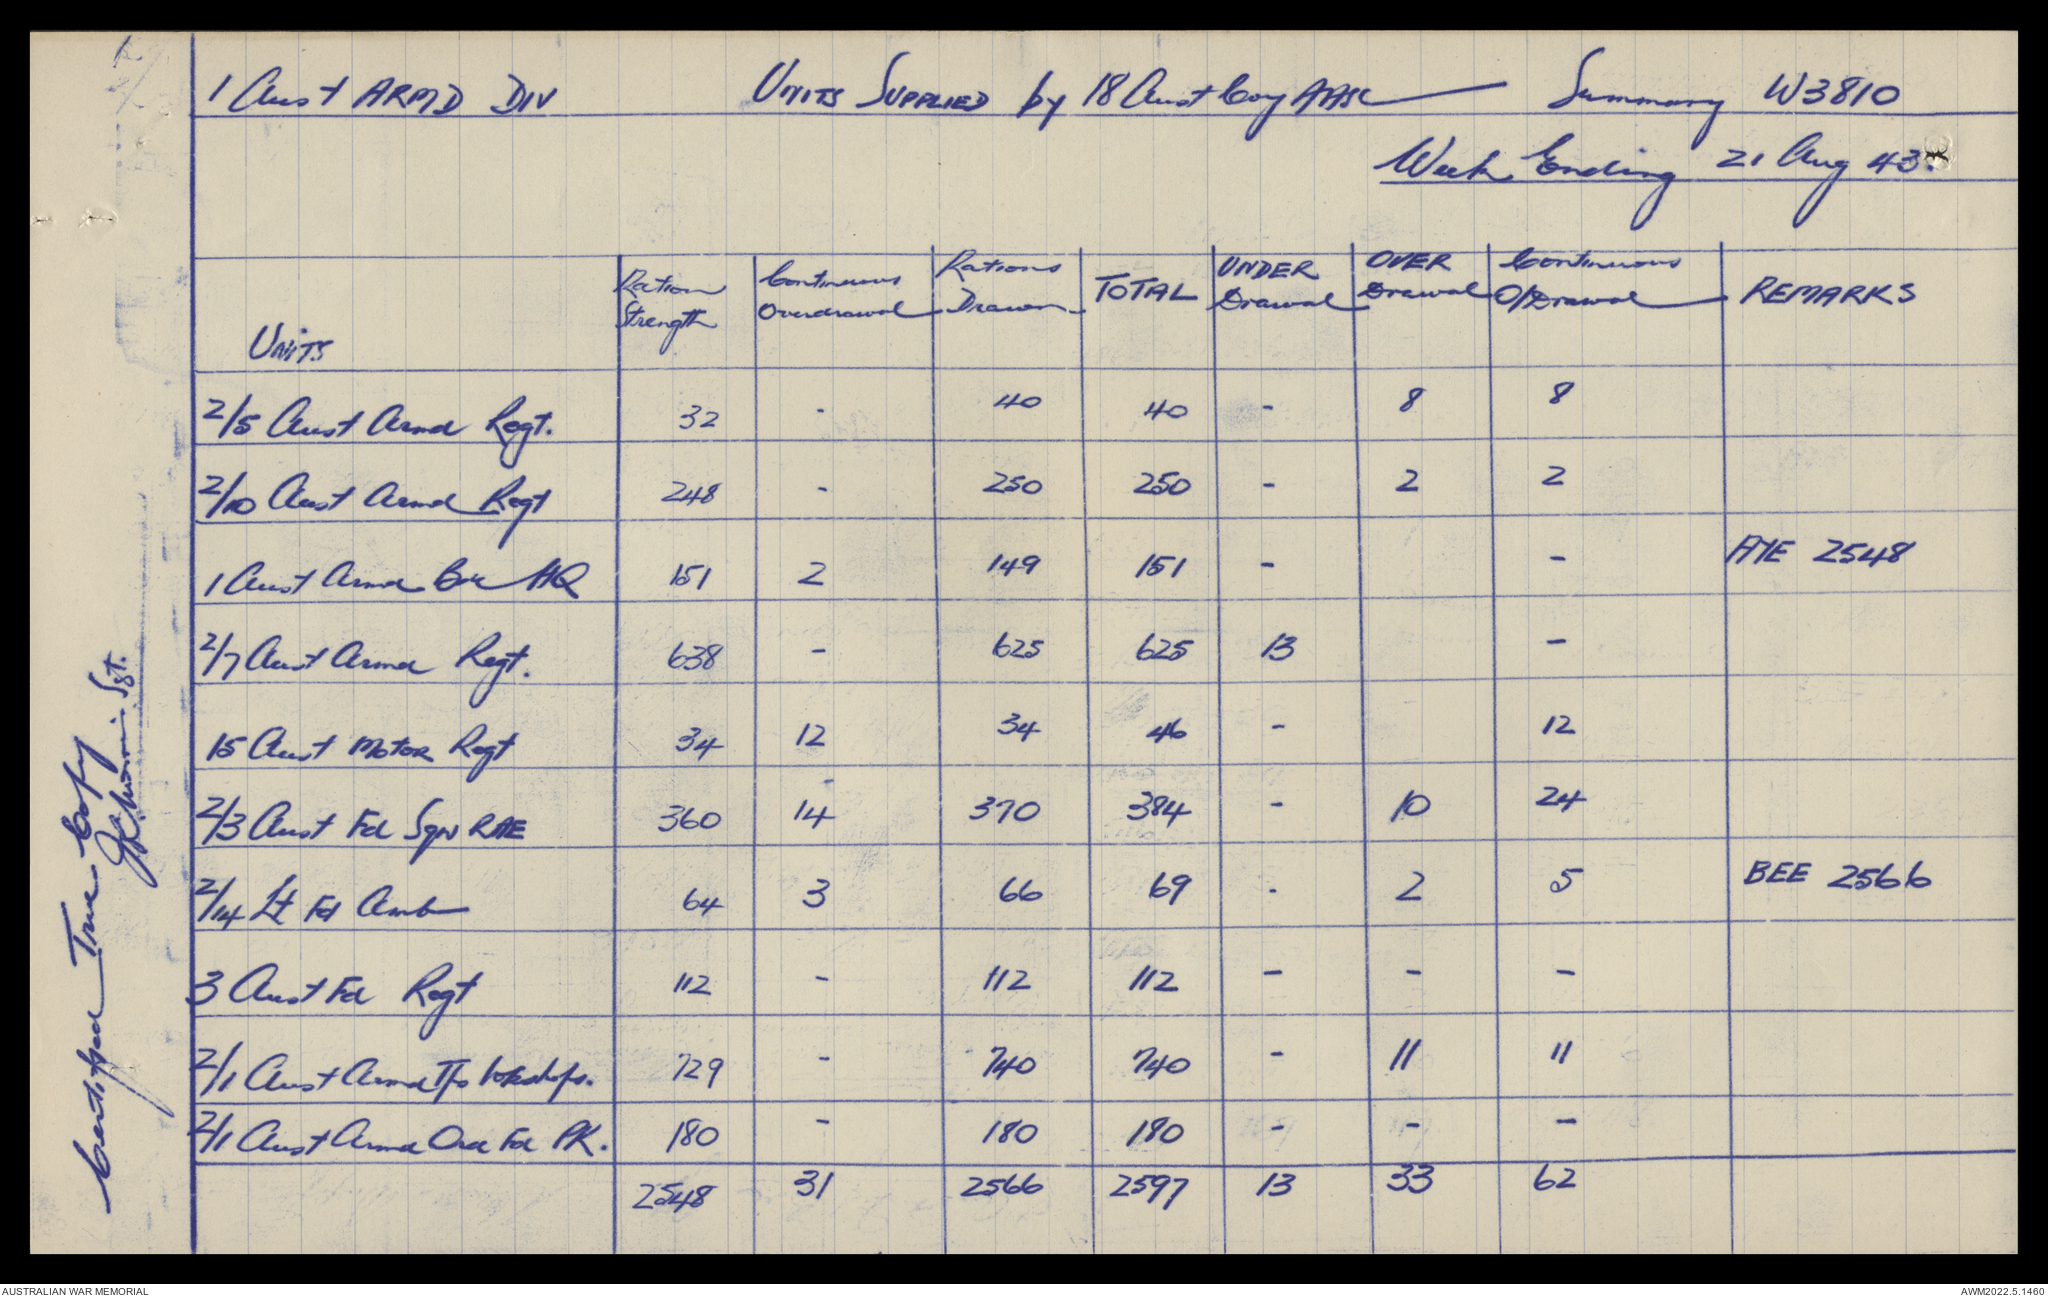 1 Aust ARMD DIV Units Supplied by 18 Aust Coy AASC Summary W3810
Week Ending 21 Aug 43.
Units Ration Strength Continuous Overdrawal Rations Drawn TOTAL UNDER Drawal OVER Drawal Continuous O/Drawal REMARKS
2/5 Aust Armd Regt. 32 - 40 40 - 8 8
2/10 Aust Armd Regt 248 - 250 250 - 2 2
1 Aust Armd Bde HQ 151 2 149 151 - - AYE 2548
2/7 Aust Armd Regt. 638 - 625 625 13 -
15 Aust Motor Regt 34 12 34 46 - 12
2/3 Aust Fd Sqn RAE 360 14 370 384 - 10 24
2/14 Lt Fd Amb 64 3 66 69 - 2 5 BEE 2566
3 Aust Fd Regt 112 - 112 112 - - -
2/1 Aust Armd Tps Wkshops. 729 - 740 740 - 11 11
2/1 Aust Armd Ord Fd PK. 180 - 180 180 - - -
2548 31 2566 2597 13 33 62
Certified True Copy
Sgt.
AUSTRALIAN WAR MEMORIAL AWM2022.5.1460